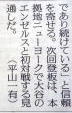 であり続けている」と信頼
を寄せる。次回登板は、本
拠地ニューヨークで大谷の
エンゼルスと初対戦する見
通しだ。
(平山 有)